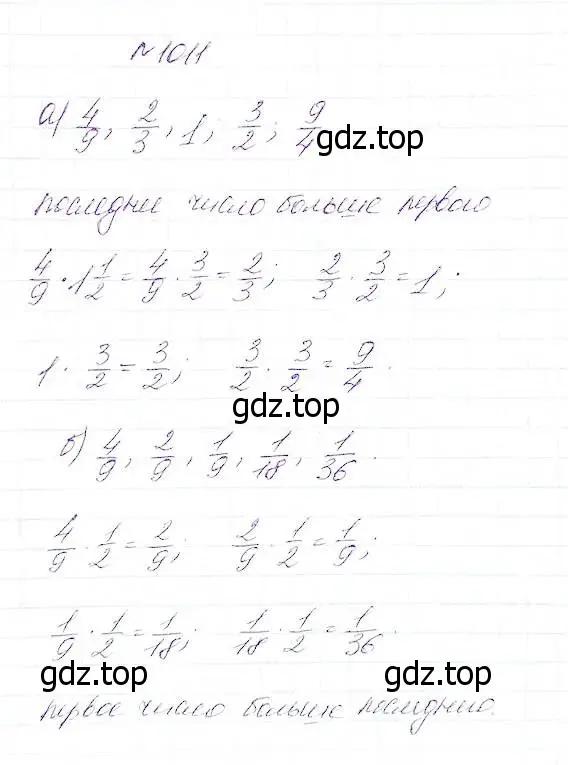 №1011
а) 4/9; 2/3; 1; 3/2; 9/4
gdz.top
последнее число больше первого
4/9 · 1 1/2 = 4/9 · 3/2 = 2/3; 2/3 · 3/2 = 1;
gdz.top
1 · 3/2 = 3/2; 3/2 · 3/2 = 9/4.
gdz.top
б) 4/9, 2/9, 1/9, 1/18, 1/36.
4/9 · 1/2 = 2/9; 2/9 · 1/2 = 1/9;
1/9 · 1/2 = 1/18; 1/18 · 1/2 = 1/36.
gdz.top gdz.top
первое число больше последнего.